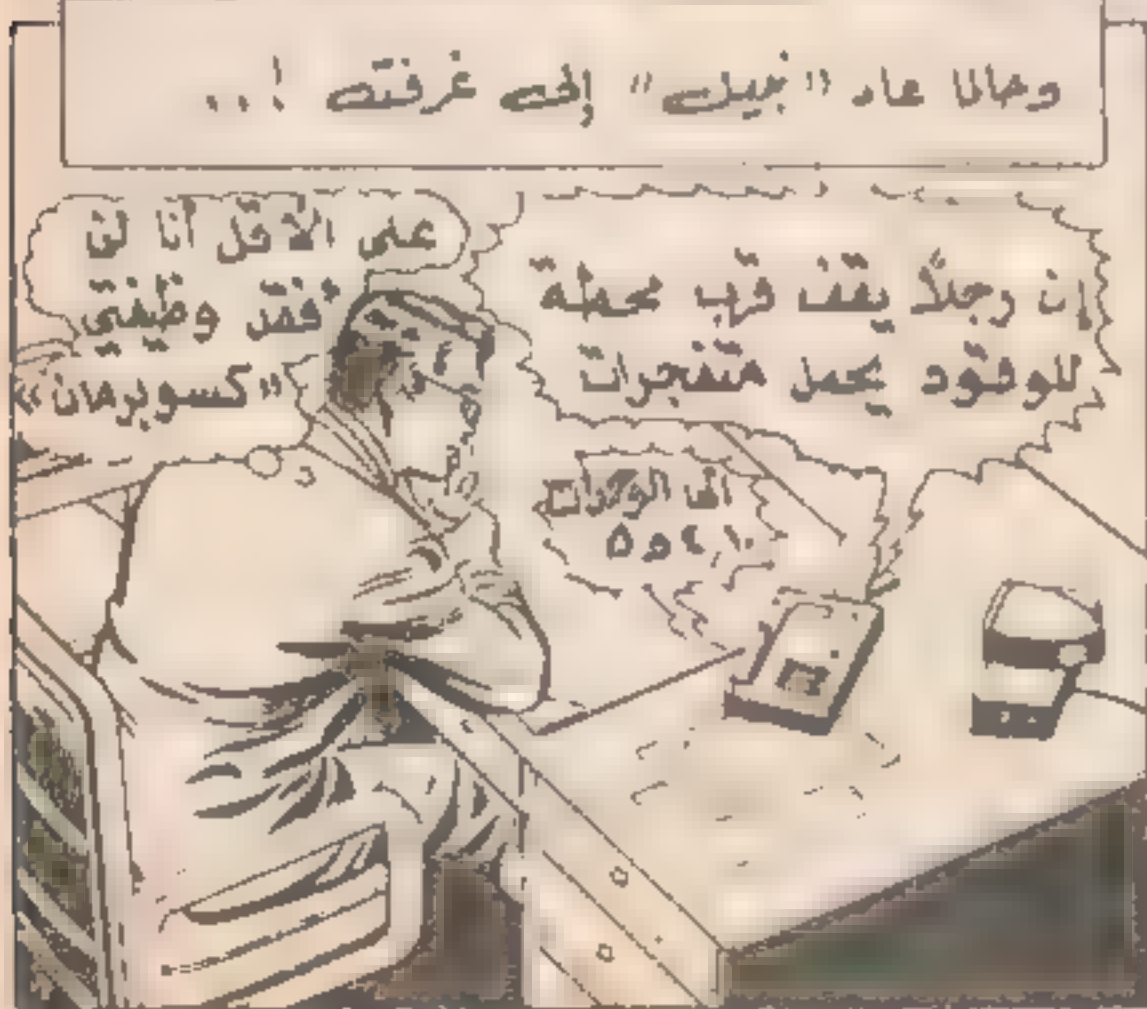 وحالما عاد «نبيل» إلى غرفته !..
إن رجلاً يقف قرب محطة
للوقود يحمل متفجرات
الى الوحدات
١٠، ٤ و ٥
على الأقل أنا لن
أفقد وظيفتي
«كسوبرمان»